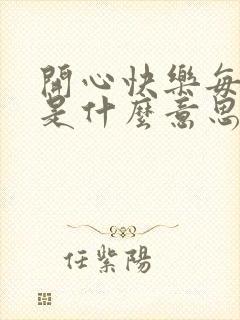 開心快樂每
是什麼意思
任紫陽